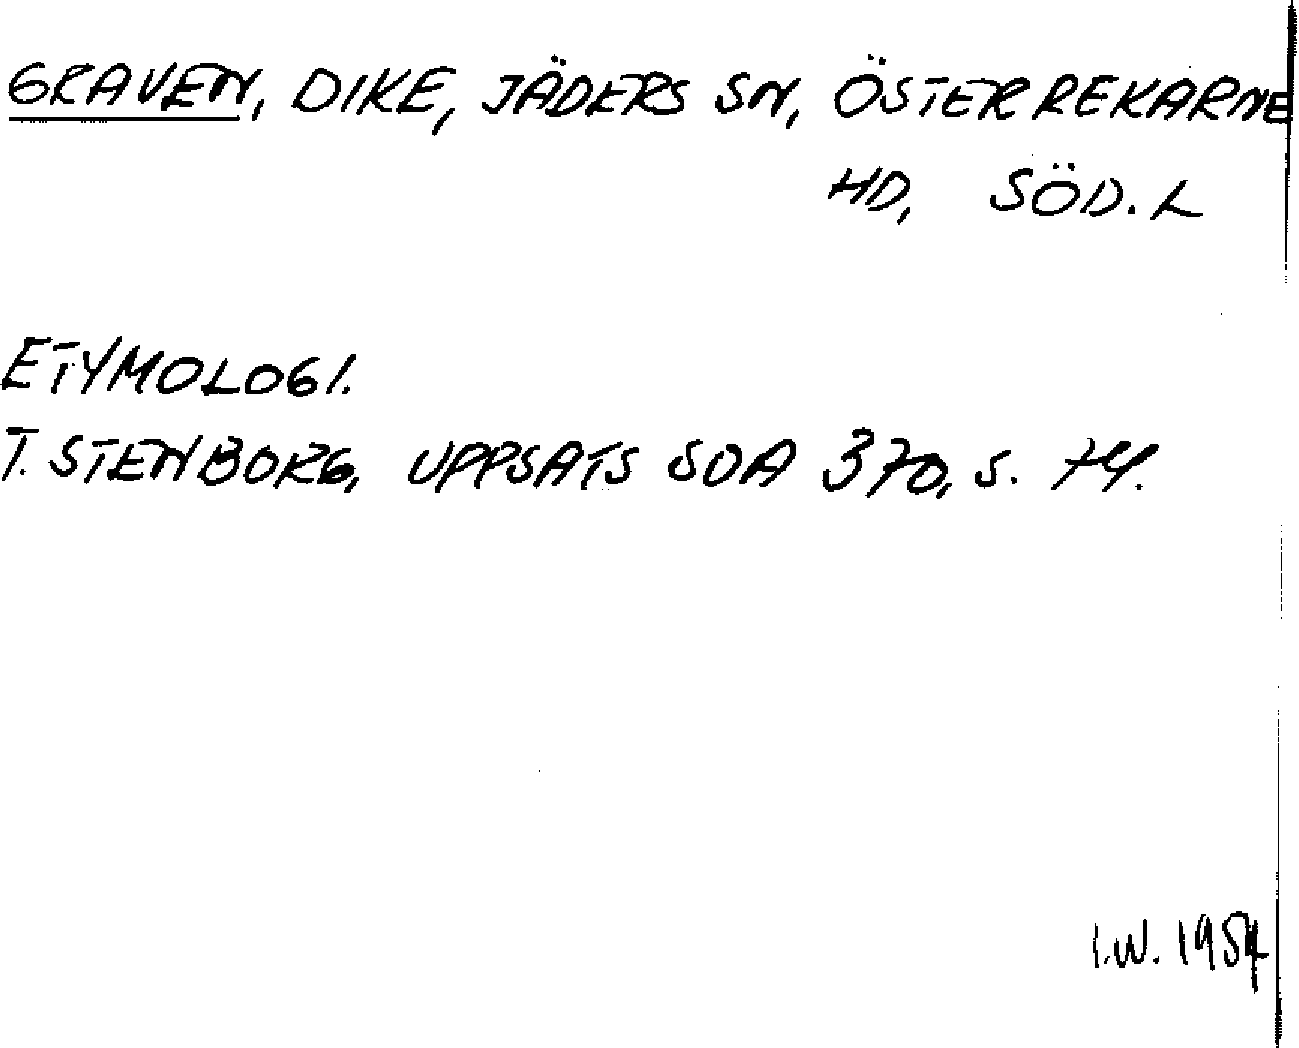 GRAVEN, DIKE, JÄDERS SN, ÖSTERREKARNE
HD, SÖD.L
ETYMOLOGI.
T. STENBORG, UPPSATS SOA 370, S. 74.
I.W. 1954